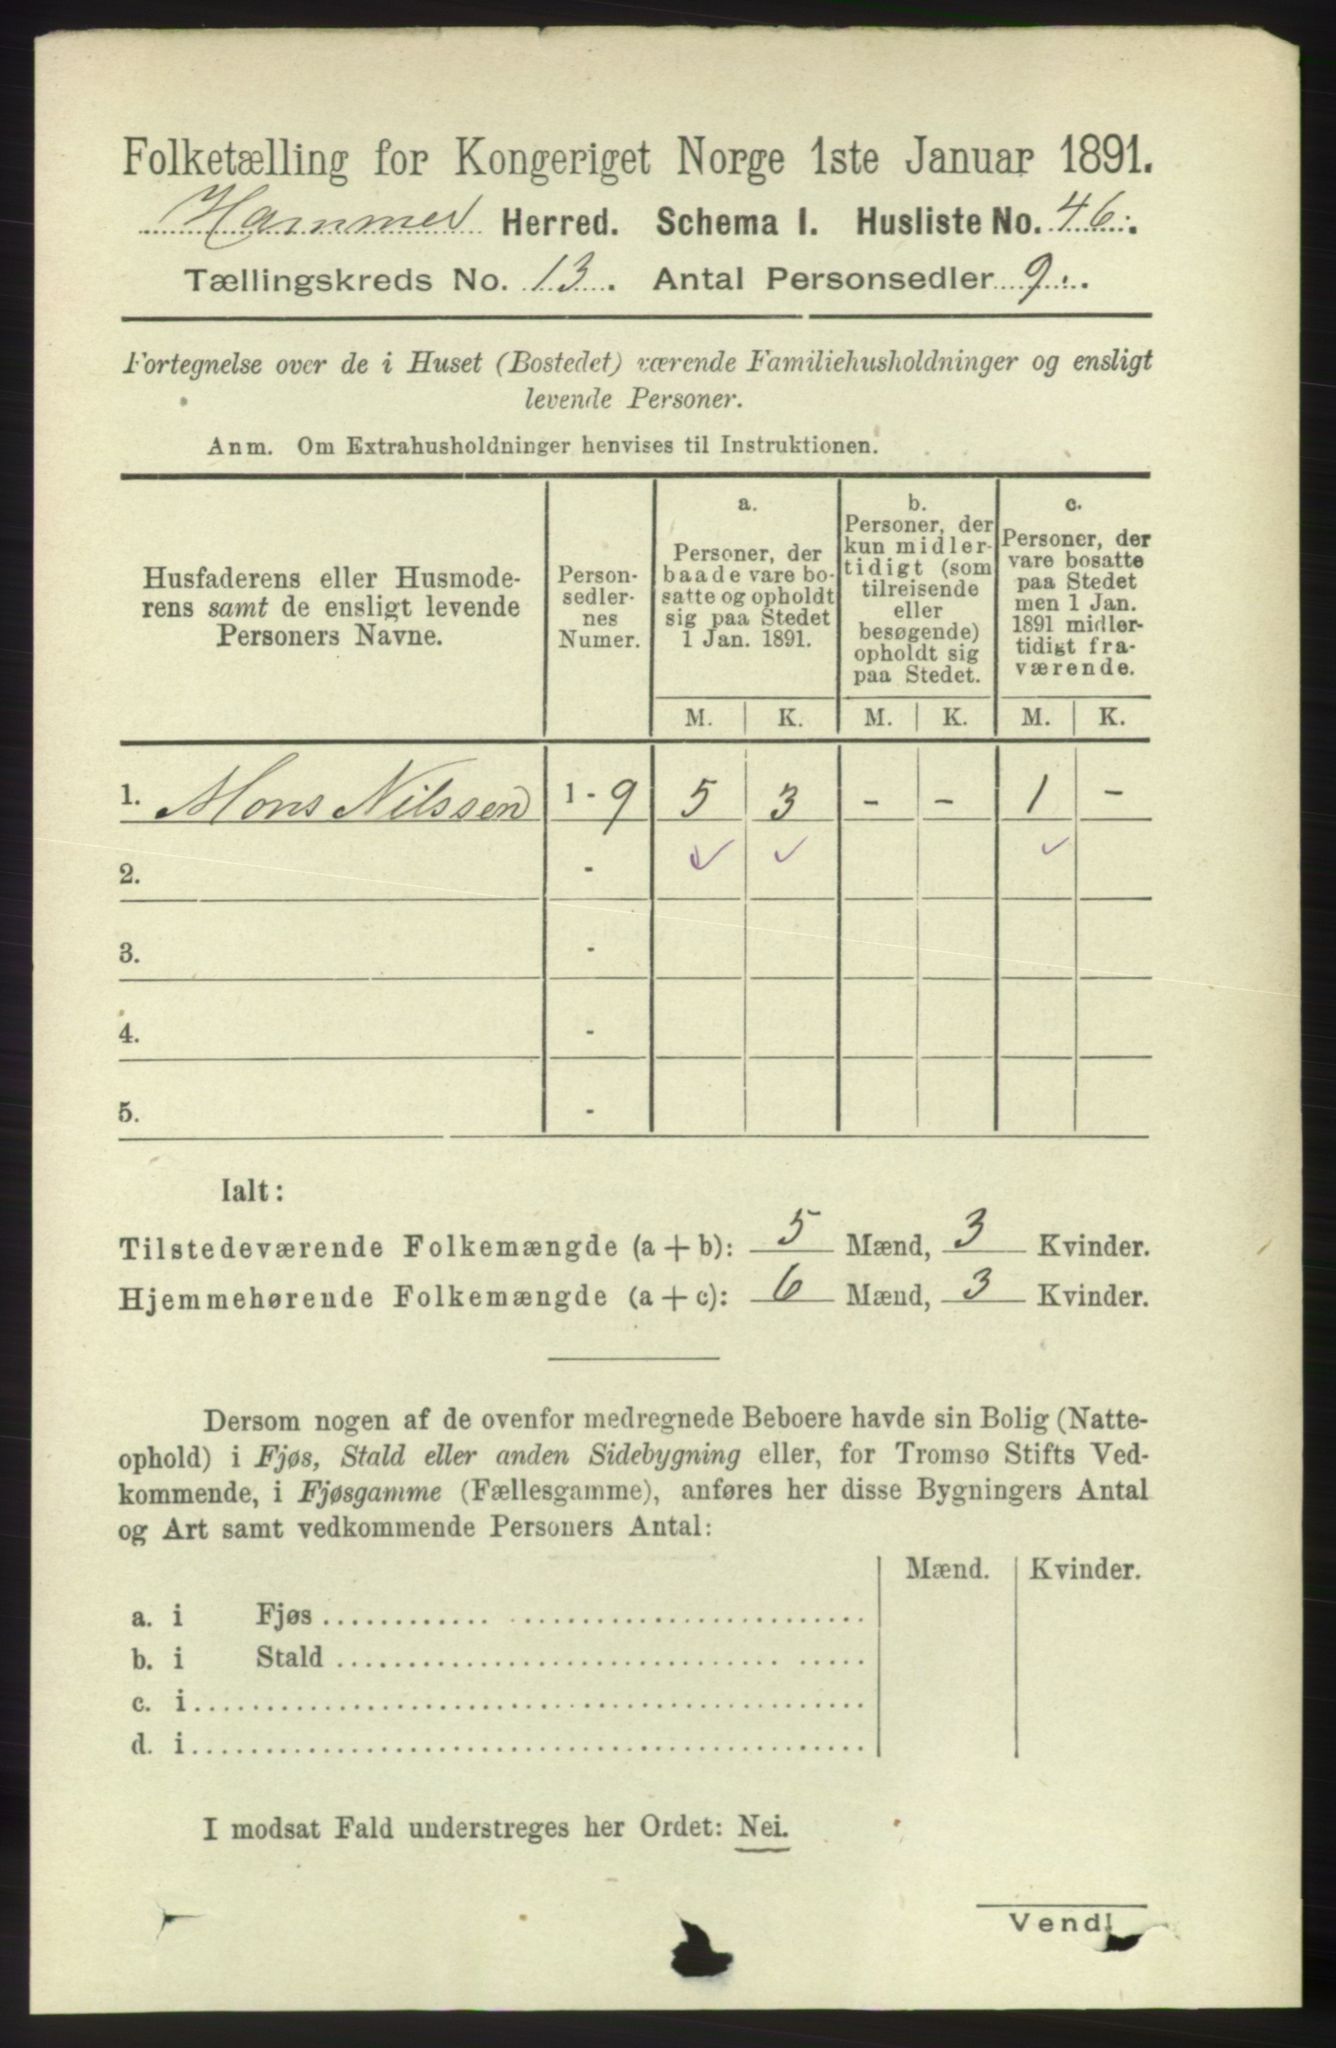 Folketælling for Kongeriget Norge 1ste Januar 1891.
Hammer Herred. Schema I. Husliste No. 46.
Tællingskreds No. 13. Antal Personsedler 9.
Fortegnelse over de i Huset (Bostedet) værende Familiehusholdninger og ensligt
levende Personer.
Anm. Om Extrahusholdninger henvises til Instruktionen.
Husfaderens eller Husmode-
rens samt de ensligt levende
Personers Navne.
Person-
sedler-
nes
Numer.
a.
Personer, der
baade vare bo-
satte og opholdt
sig paa Stedet
1 Jan. 1891.
b.
Personer, der
kun midler-
tidigt (som
tilreisende
eller
besøgende)
opholdt sig
paa Stedet.
c.
Personer, der
vare bosatte
paa Stedet
men 1 Jan.
1891 midler-
tidigt fra-
værende.
M. K. M. K. M. K.
1. Mons Nilssen 1 - 9 5 3 - - 1 -
2. -
3. -
4. -
5. -
Ialt:
Tilstedeværende Folkemængde (a + b): 5 Mænd, 3 Kvinder.
Hjemmehørende Folkemængde (a + c): 6 Mænd, 3 Kvinder.
Dersom nogen af de ovenfor medregnede Beboere havde sin Bolig (Natte-
ophold) i Fjøs, Stald eller anden Sidebygning eller, for Tromsø Stifts Ved-
kommende, i Fjøsgamme (Fællesgamme), anføres her disse Bygningers Antal
og Art samt vedkommende Personers Antal:
Mænd. Kvinder.
a. i Fjøs
b. i Stald
c. i
d. i
I modsat Fald understreges her Ordet: Nei.
Vend!